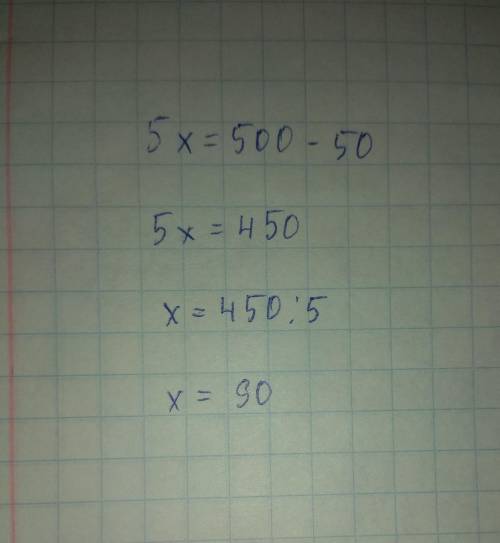 5x = 500 - 50
5x = 450
x = 450 : 5
x = 90